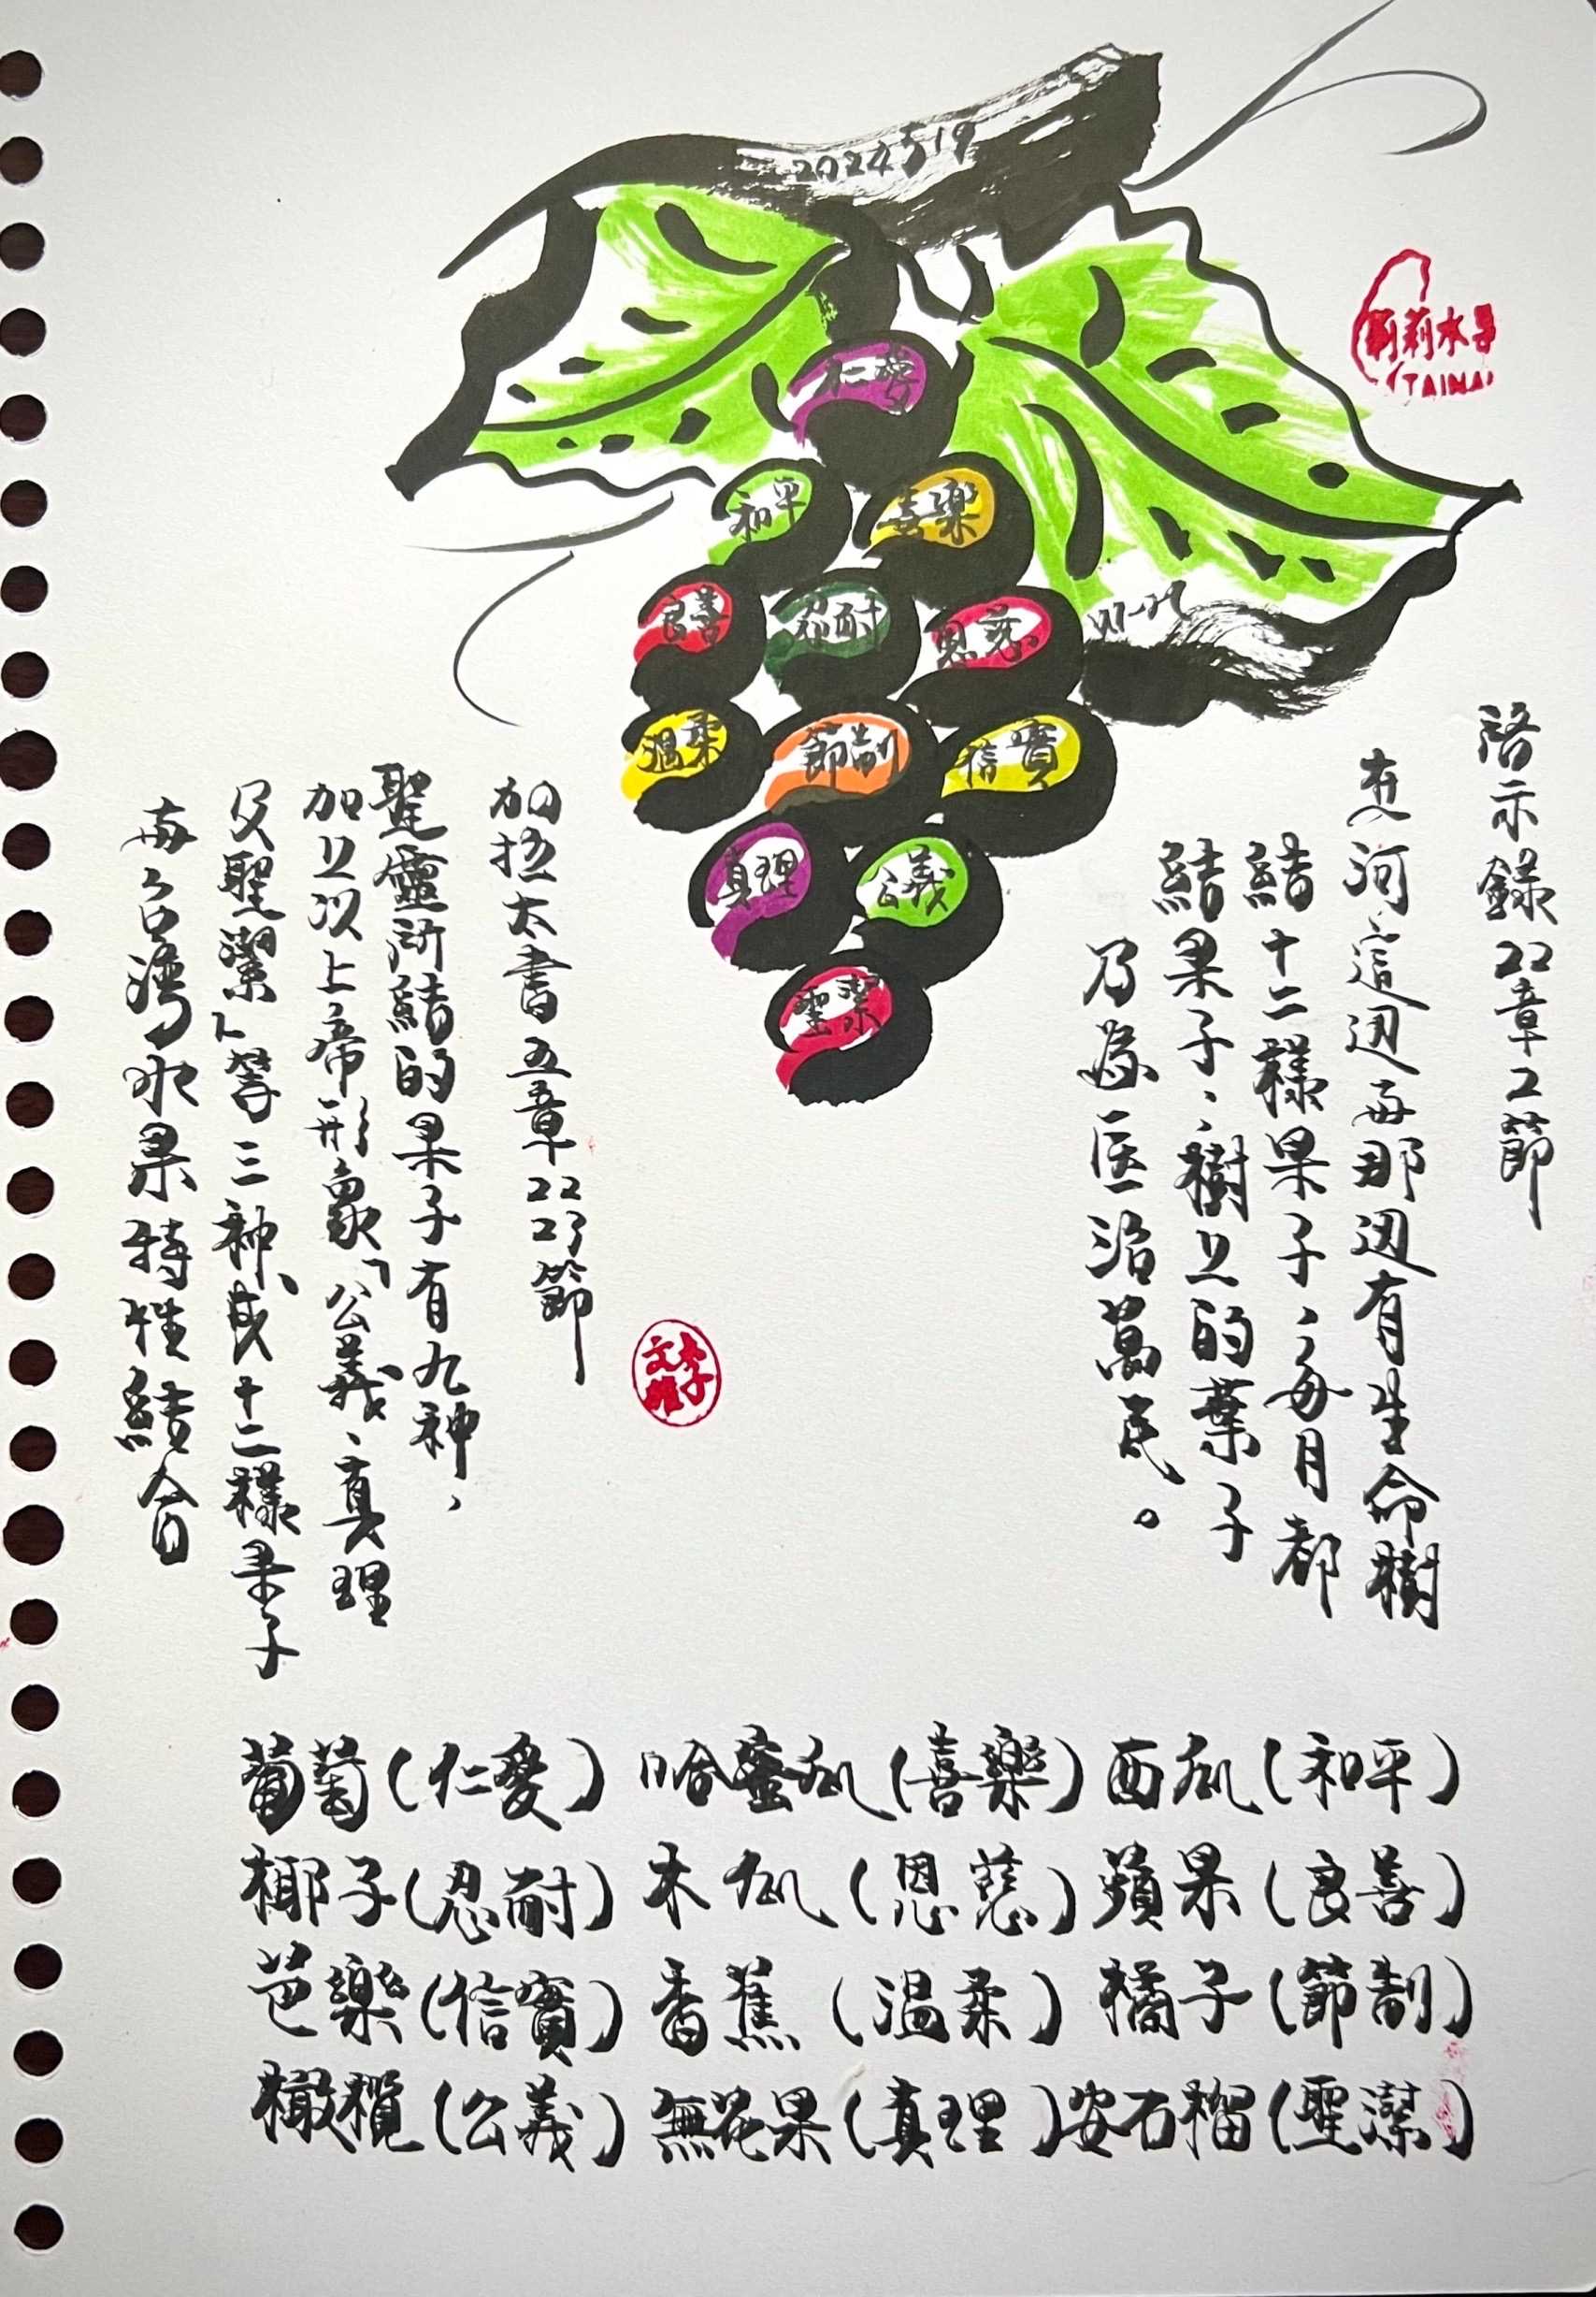 2024 5 19
仁愛
和平
喜樂
良善
忍耐
恩慈
溫柔
節制
信實
真理
公義
聖潔
啓示錄22章2節
在河這边与那边有生命樹
結十二樣果子，每月都
結果子，樹上的葉子
乃為医治萬民。
加拉太書五章22 23節
聖靈所結的果子有九种，
加上以上帝形象「公義、真理
及聖潔」等三种、成十二樣果子
与台灣水果特性結合
葡萄(仁愛) 哈蜜瓜(喜樂) 西瓜(和平)
椰子(忍耐) 木瓜(恩慈) 蘋果(良善)
芭樂(信實) 香蕉(温柔) 橘子(節制)
橄欖(公義) 無花果(真理) 安石榴(聖潔)